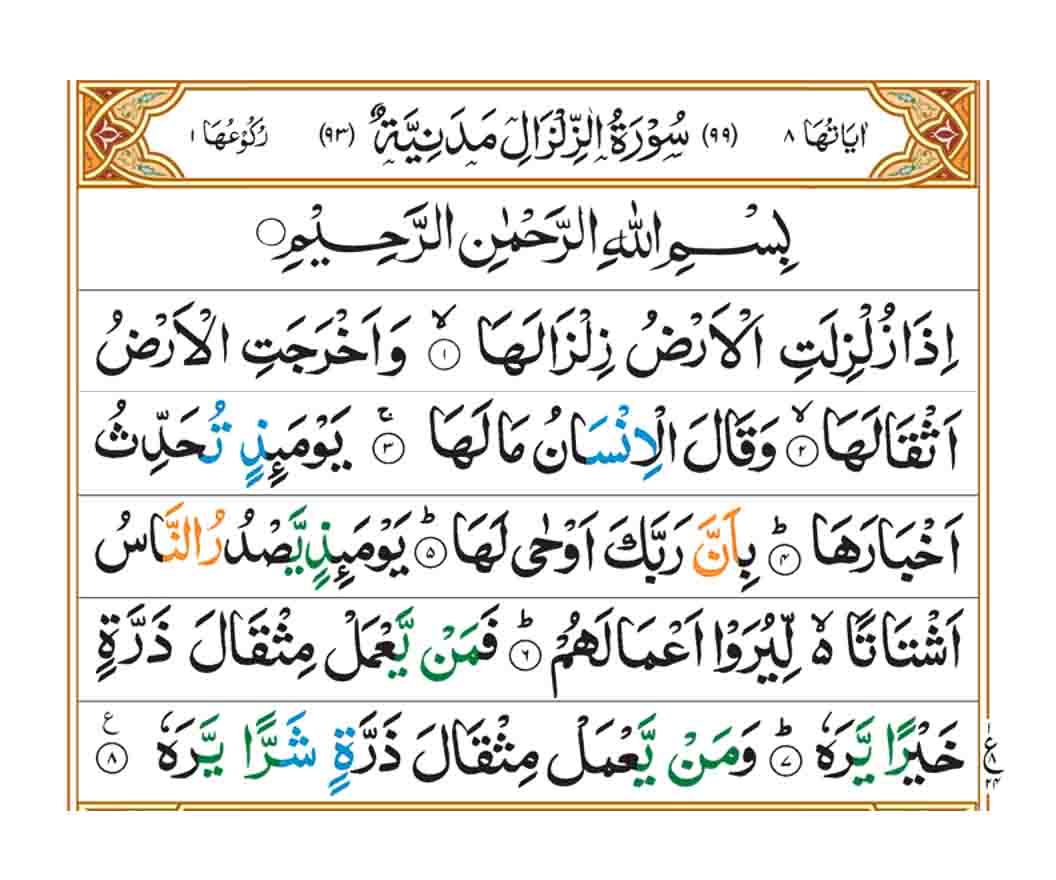 اٰيَاتُهَا ٨ (٩٩) سُوْرَةُ الزِّلْزَالِ مَدَنِيَّةٌ (٩٣) رُكُوْعُهَا ١
بِسْمِ اللّٰهِ الرَّحْمٰنِ الرَّحِيْمِ
اِذَا زُلْزِلَتِ الْاَرْضُ زِلْزَالَهَا ۙ ١ وَاَخْرَجَتِ الْاَرْضُ
اَثْقَالَهَا ۙ ٢ وَقَالَ الْاِنْسَانُ مَا لَهَا ۚ ٣ يَوْمَىِٕذٍ تُحَدِّثُ
اَخْبَارَهَا ؕ ٤ بِاَنَّ رَبَّكَ اَوْحٰى لَهَا ؕ ٥ يَوْمَىِٕذٍ يَّصْدُرُ النَّاسُ
اَشْتَاتًا ۵ لِّيُرَوْا اَعْمَالَهُمْ ؕ ٦ فَمَنْ يَّعْمَلْ مِثْقَالَ ذَرَّةٍ
خَيْرًا يَّرَهٗ ؕ ٧ وَمَنْ يَّعْمَلْ مِثْقَالَ ذَرَّةٍ شَرًّا يَّرَهٗ ع ٨
١ ع ٨ ٢٤